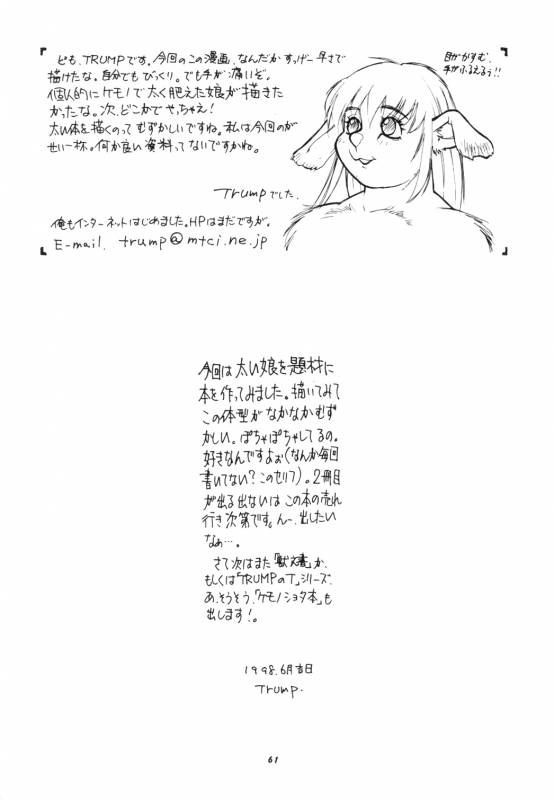 ども、TRUMPです。今回のこの漫画、なんだかすっげー早さで
描けたな。自分でもびっくり。でも手が痛いぞ。
個人的にケモノで太く肥えた娘が描きた
かったな。次、どこかでやっちゃえ!
太い体を描くのってむずかしいですね。私は今回のが
せい一杯。何か良い資料ってないですかね。
Trumpでした。
俺もインターネットはじめました。HPはまだですが。
E-mail. trump@mtci.ne.jp
目がかすむ、
手がふるえるぅ!!
今回は太い娘を題材に
本を作ってみました。描いてみて
この体型がなかなかむず
かしい。ぽちゃぽちゃしてるの。
好きなんですよぉ(なんか毎回
書いてない?このセリフ)。2冊目
が出る出ないはこの本の売れ
行き次第です。んー、出したい
なぁ…。
さて次はまた「獣文書」か、
もしくは「TRUMPのT」シリーズ、
あ、そうそう、「ケモノショタ本」も
出します!。
1998.6月吉日
Trump.
61